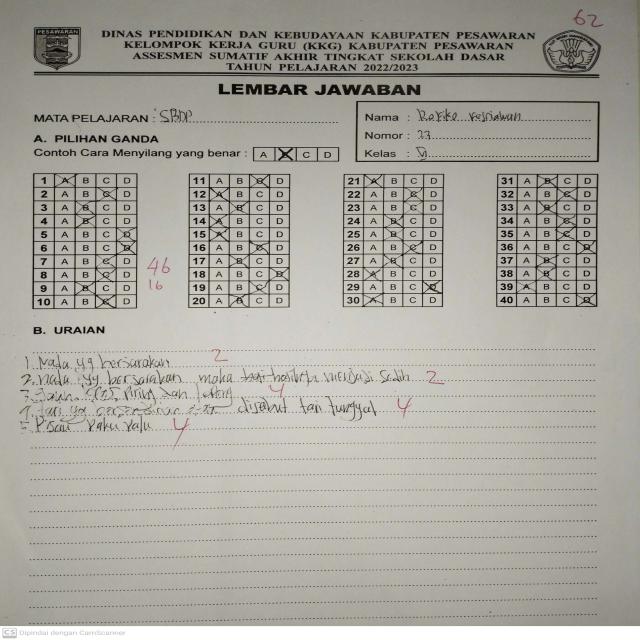 62
PESAWARAN
DINAS PENDIDIKAN DAN KEBUDAYAAN KABUPATEN PESAWARAN
KELOMPOK KERJA GURU (KKG) KABUPATEN PESAWARAN
ASSESMEN SUMATIF AKHIR TINGKAT SEKOLAH DASAR
TAHUN PELAJARAN 2022/2023
LEMBAR JAWABAN
MATA PELAJARAN : SBDP
Nama :
Nomor : 27
Kelas : VI
A. PILIHAN GANDA
Contoh Cara Menyilang yang benar : A B C D
1 A B C D 11 A B C D 21 A B C D 31 A B C D
2 A B C D 12 A B C D 22 A B C D 32 A B C D
3 A B C D 13 A B C D 23 A B C D 33 A B C D
4 A B C D 14 A B C D 24 A B C D 34 A B C D
5 A B C D 15 A B C D 25 A B C D 35 A B C D
6 A B C D 16 A B C D 26 A B C D 36 A B C D
7 A B C D 17 A B C D 27 A B C D 37 A B C D
8 A B C D 18 A B C D 28 A B C D 38 A B C D
9 A B C D 19 A B C D 29 A B C D 39 A B C D
10 A B C D 20 A B C D 30 A B C D 40 A B C D
46
16
B. URAIAN
1. Nada yg bersarakan 2
2. nada yg bersarakan maka menjadi sedih 2
3. Piring dan 4
4. tari yg disebut tari tunggal 4
5. Pisau Paku Palu 4
CS Dipindai dengan CamScanner